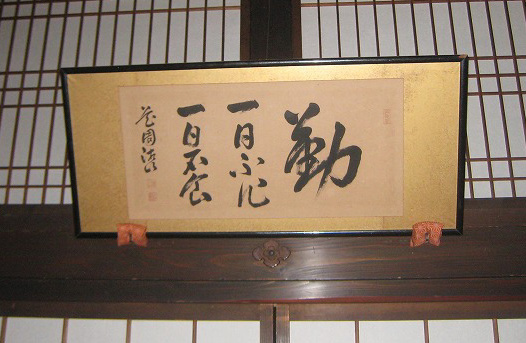 勤
一日不作
一日不食